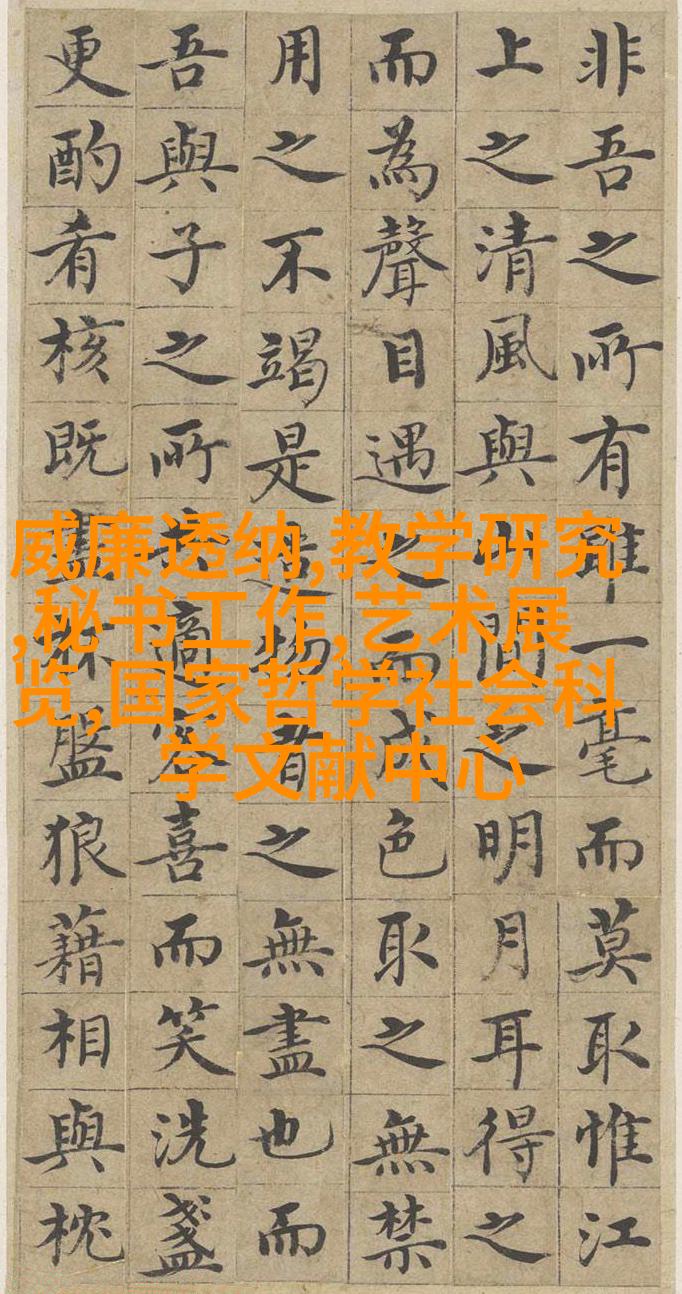 非吾之所有雖一毫而莫取惟江
上之清風與山間之明月耳得之
而為聲目遇之而成色取之無禁
用之不竭是造物者之無盡也而
吾與子之所共適客喜而笑洗盞
更酌肴核既盡杯盤狼藉相與枕
威廉透纳,教学研究
,秘书工作,艺术展
览,国家哲学社会科
学文献中心